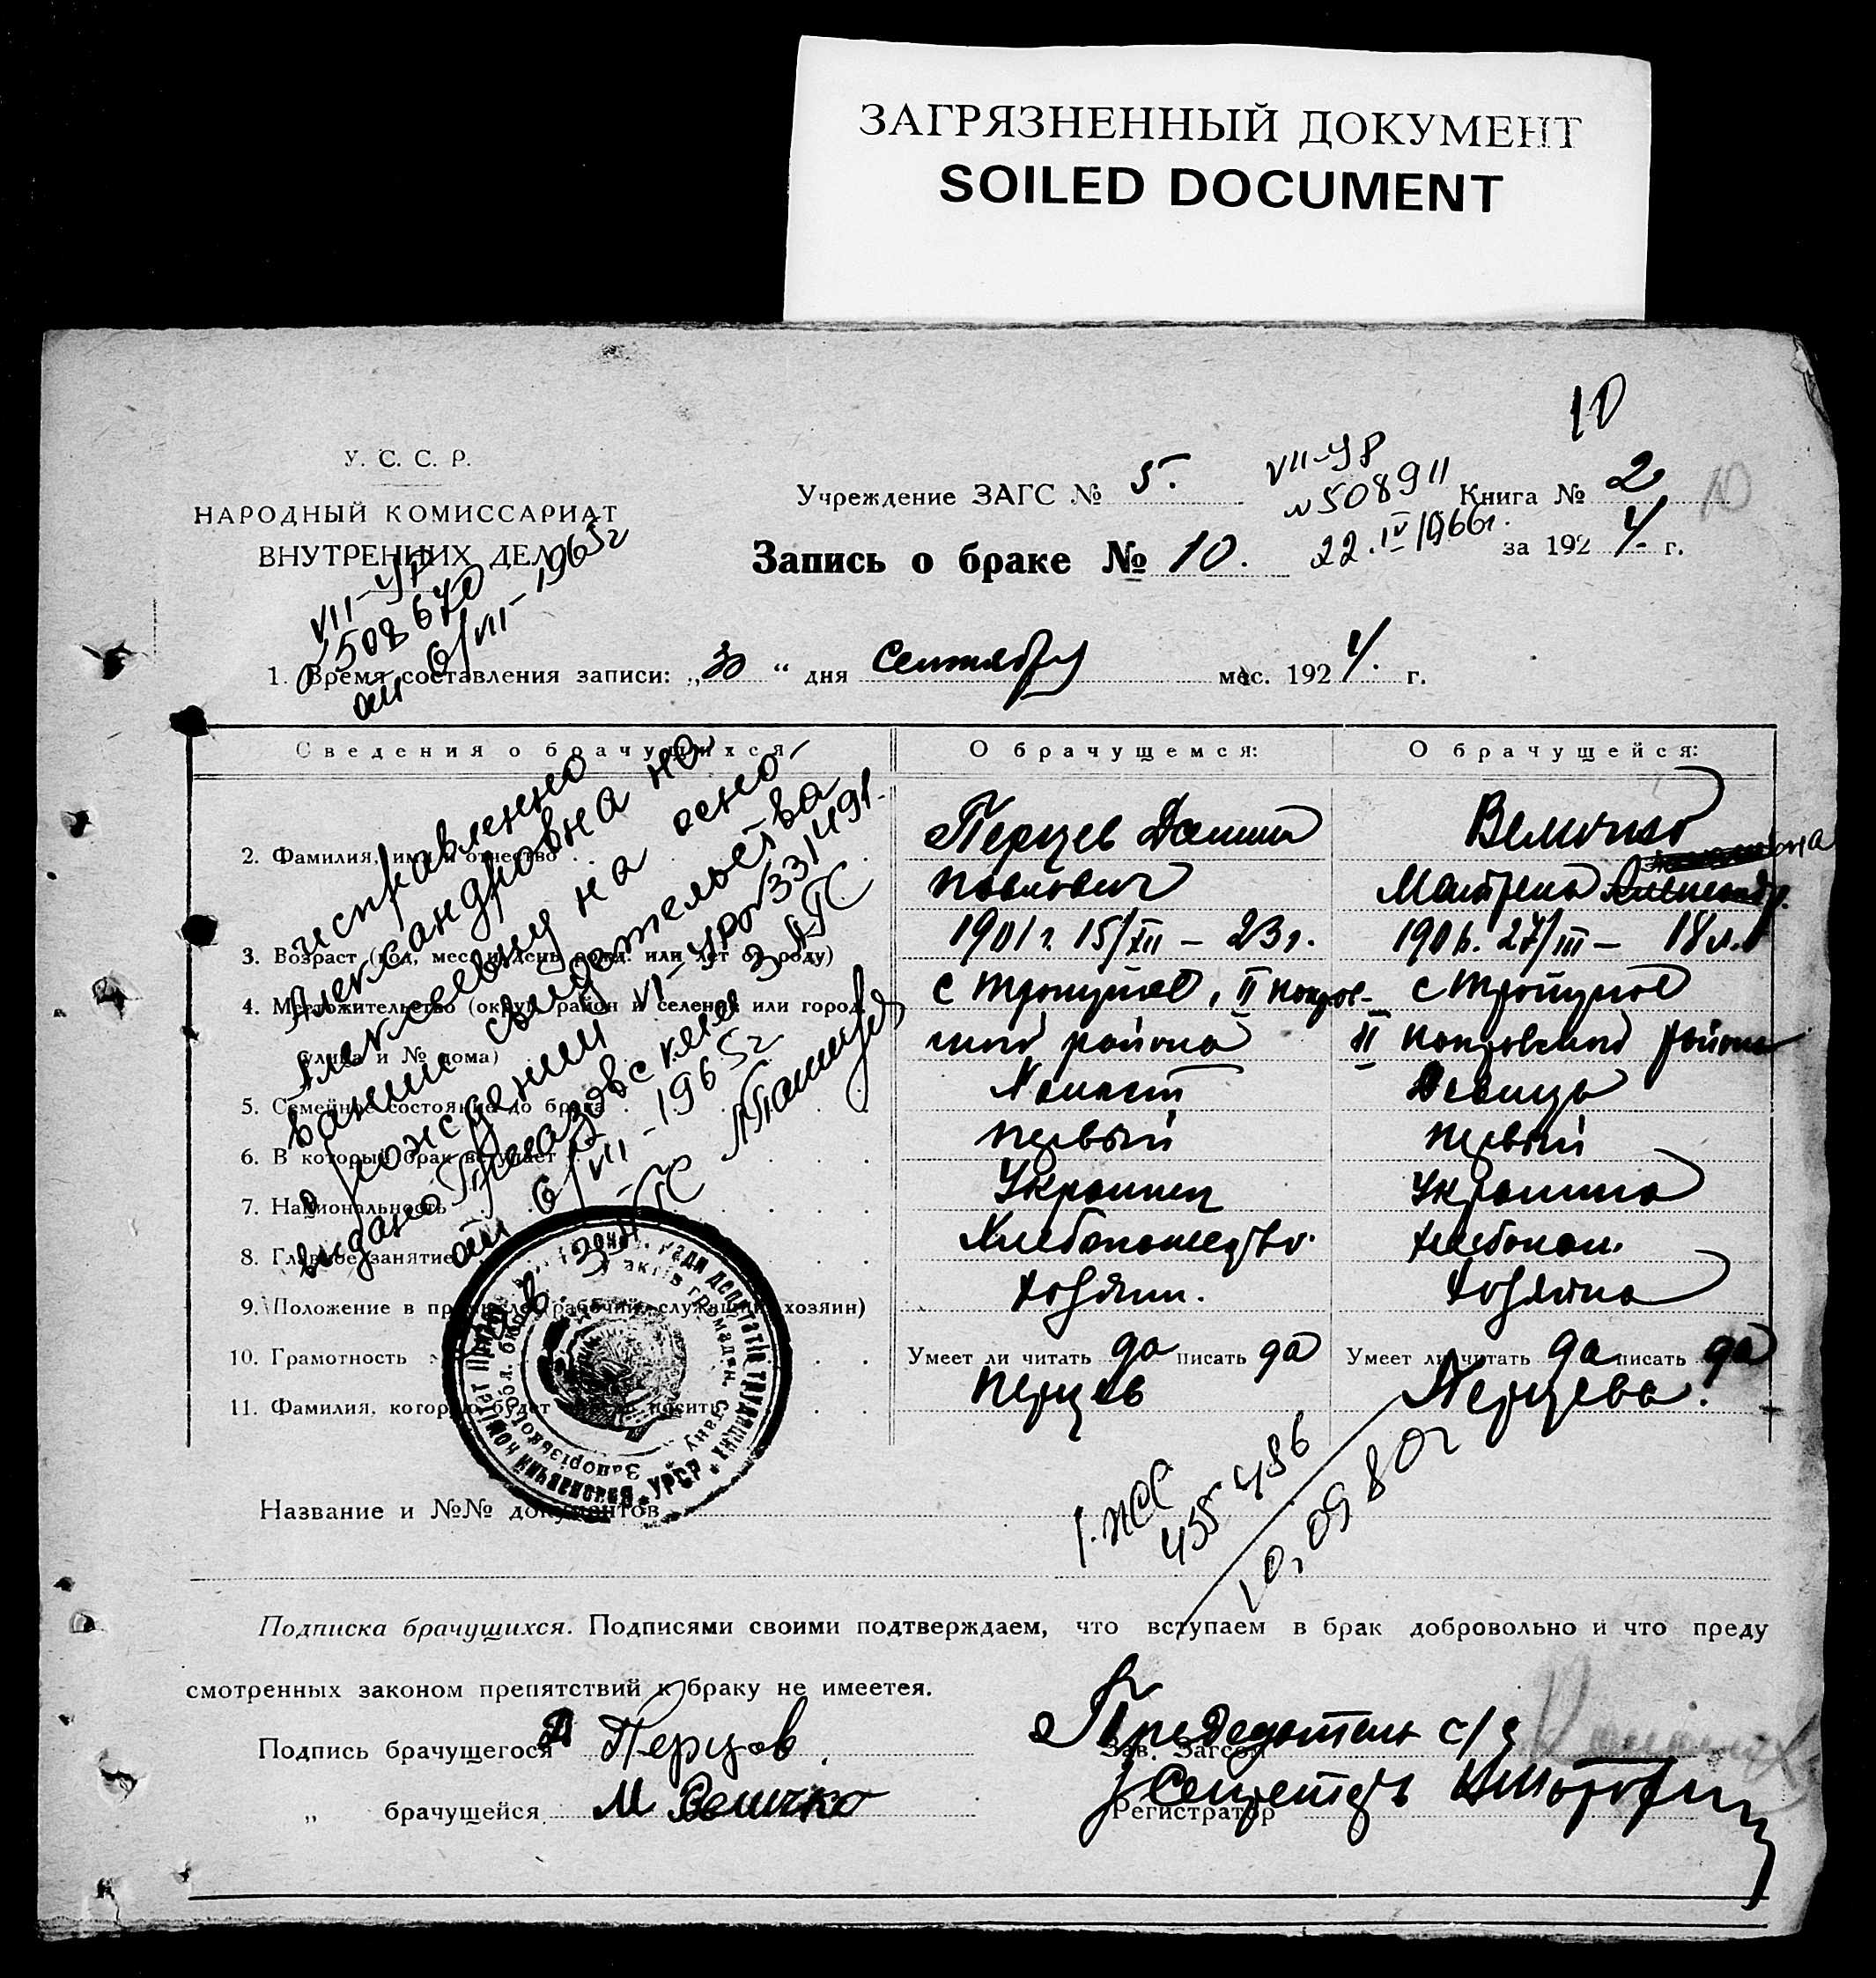 ЗАГРЯЗНЕННЫЙ ДОКУМЕНТ
SOILED DOCUMENT
10
У. С. С. Р.
НАРОДНЫЙ КОМИССАРИАТ
ВНУТРЕННИХ ДЕЛ
VII-УР
508670
от 6/VII-1965г
Учреждение ЗАГС № 5.
VII-УР
№508911
22.IV 1966г.
Книга № 2
10
за 1924. г.
Запись о браке № 10.
1. Время составления записи: „30“ дня Сентября мес. 1924. г.
Сведения о брачущихся
О брачущемся:
О брачущейся:
2. Фамилия, имя и отчество
Перцев Данил
Павлович
Величко
Матрена
3. Возраст (год, мес. и день рожд. или лет от роду)
1901 г. 15/XII – 23 г.
1906. 27/III – 18 л.
4. Местожительство (округ, район и селение или город,
улица и № дома)
с Троицкое, II Покров-
ского района
с Троицкое
II Покровского района
5. Семейное состояние до брака
Холост
Девица
6. В который брак вступает
первый
первый
7. Национальность
Украинец
Украинка
8. Главное занятие
Хлебопашество.
хлебопаш.
9. Положение в промысле (рабочий, служащий, хозяин)
хозяин.
хозяйка
10. Грамотность
Умеет ли читать да писать да
Умеет ли читать да писать да
11. Фамилия, которую будет носить
Перцев
Перцева.
исправленно
Александровна на
Алексеевну на осно-
вании свидетельства
о рождении VI-УР №331491.
выдано ЗАГС
от 6/VII-1965г
Зав. ЗАГС
455486
10,09 80г
Название и №№ документов
Подписка брачущихся. Подписями своими подтверждаем, что вступаем в брак добровольно и что преду
смотренных законом препятствий к браку не имеется.
Подпись брачущегося Д Перцов
„ брачущейся М Величко
Зав. Загсом
Председатель с/с
Регистратор
Секретарь